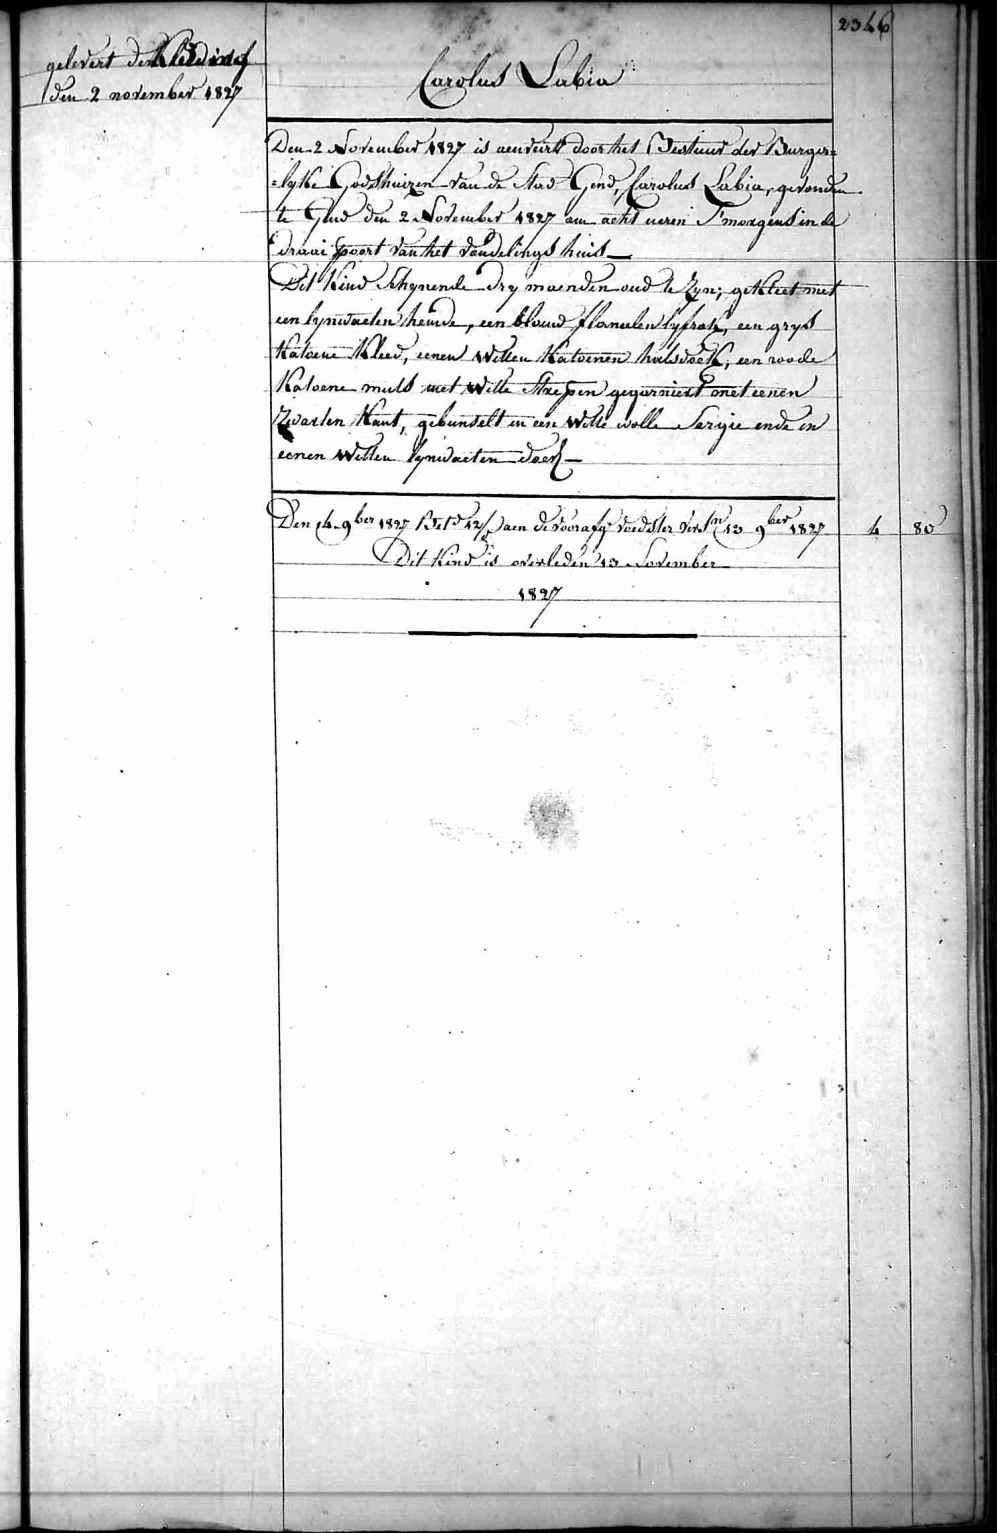 2346
gelevert den Kleeding
den 2 november 1827
Carolus Labia
Den 2 November 1827 is aenveirt door het Bestuur der Burger=
=lyke Godshuizen van de Stad Gend, Carolus Labia, gevonden
te Gend den 2 November 1827 om acht ueren S'morgens in de
draai poort van het vondelings huis —
Dit Kind Schynende dry maenden oud te zyn; gekleet met
een lynwaeten hemde, een blauw flaneelen lyfrok, een grys
Katoene Kleed, eenen Witten Katoenen halsdoek, een roode
Katoene muts met Witte Strepen gegarniert met eenen
Zwarten Kant, gebundelt in een Witte wolle Sargie ende in
eenen Witten lynwaeten doek —
Den 14 9ber 1827 Bet.d aen de voorafg. voedster 13 9ber 1827 4 80
Dit Kind is overleden 13 November
1827